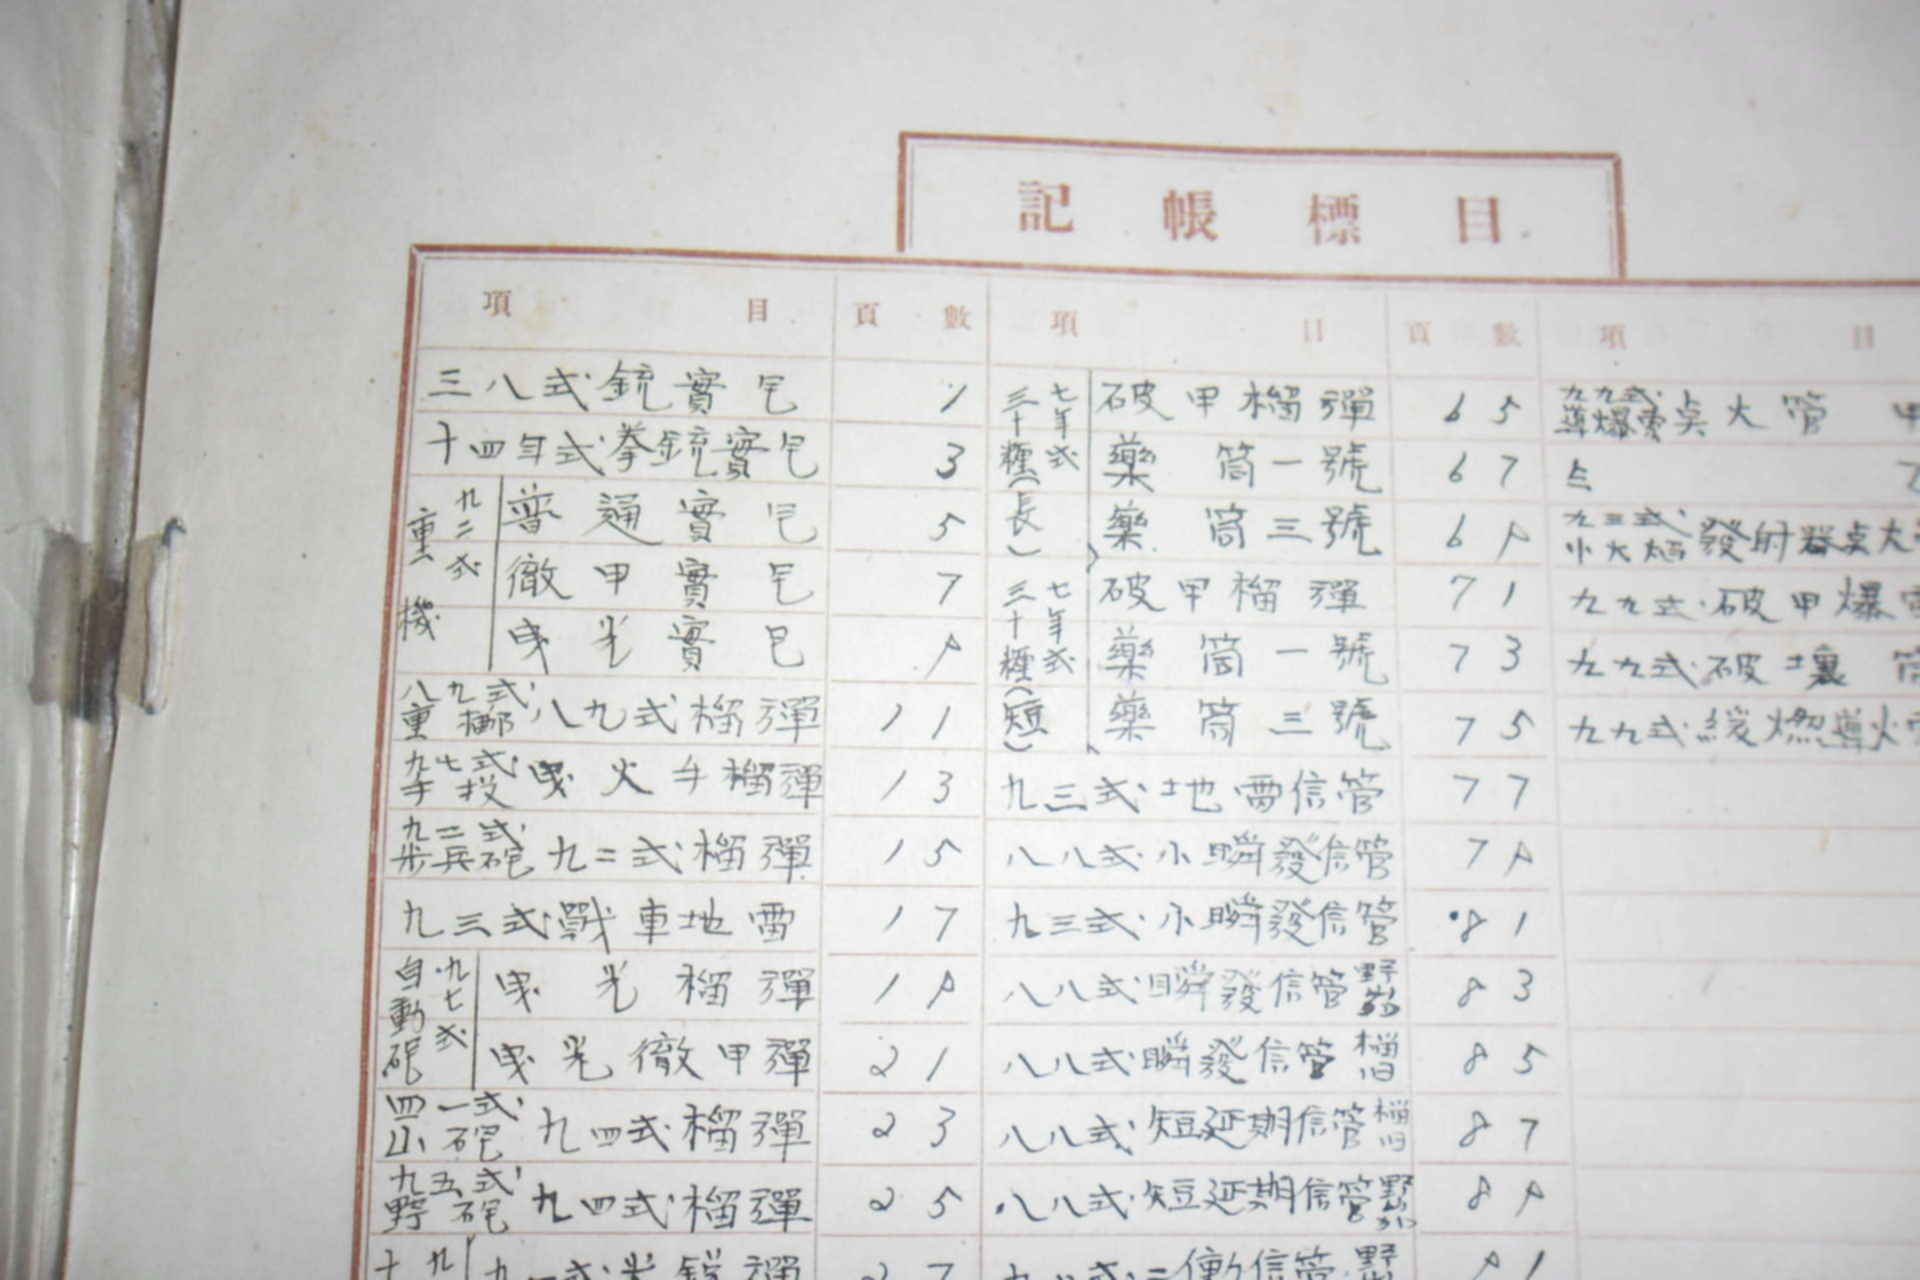 記帳標目
項目 頁數 項目 頁數 項目
三八式銃實包 1
十四年式拳銃實包 3
九二式重機 普通實包 5
徹甲實包 7
曳光實包 9
八九式重擲 八九式榴彈 11
九七式手投 曳火手榴彈 13
九二式步兵砲 九二式榴彈 15
九三式戰車地雷 17
九七式自動砲 曳光榴彈 19
曳光徹甲彈 21
四一式山砲 九四式榴彈 23
九五式野砲 九四式榴彈 25
27
三七年式十糎(長) 破甲榴彈 65
藥筒一號 67
藥筒三號 69
三七年式十糎(短) 破甲榴彈 71
藥筒一號 73
藥筒三號 75
九三式地雷信管 77
八八式小瞬發信管 79
九三式小瞬發信管 81
八八式瞬發信管 野山 83
八八式瞬發信管 榴 85
八八式短延期信管 榴 87
八八式短延期信管 野山 89
二働信管 野 91
九九式導爆索点火管 甲
点
九三式小火焰發射器点火
九九式破甲爆
九九式破壞筒
九九式緩燃導火